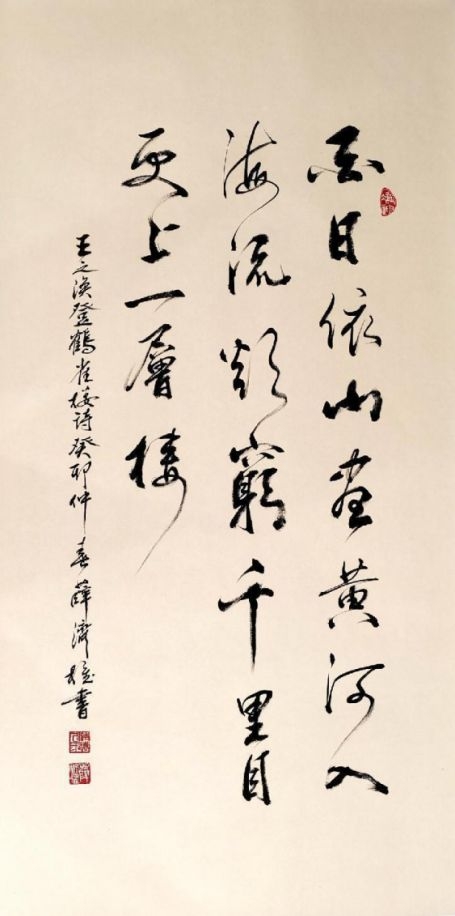 白日依山尽黄河入
海流欲窮千里目
更上一層楼
王之渙登鹤雀楼诗癸卯仲春薛濟揆書